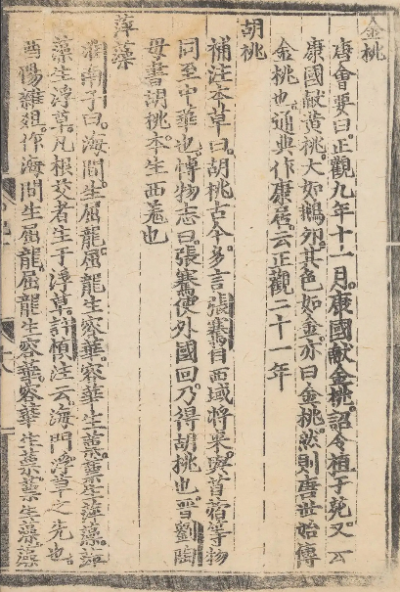 金桃
唐會要曰正觀九年十一月康國獻金桃詔令植于苑又云
康國獻黃桃大如鵝卵其色如金亦曰金桃然則唐世始傳
金桃也通典作康居云正觀二十一年
胡桃
補注本草曰胡桃古今多言張騫自西域將來與苜蓿等物
同至中華也博物志曰張騫使外國回乃得胡桃也晉劉陶
母書胡桃本生西羌也
萍藻
淮南子曰海閭生屈龍屈龍生容華容華生蔈蔈生萍藻萍
藻生浮草凡根茇者生于浮草許慎注云海閭浮草之先也
酉陽雜俎作海間生屈龍屈龍生容華容華生蔈蔈生藻藻